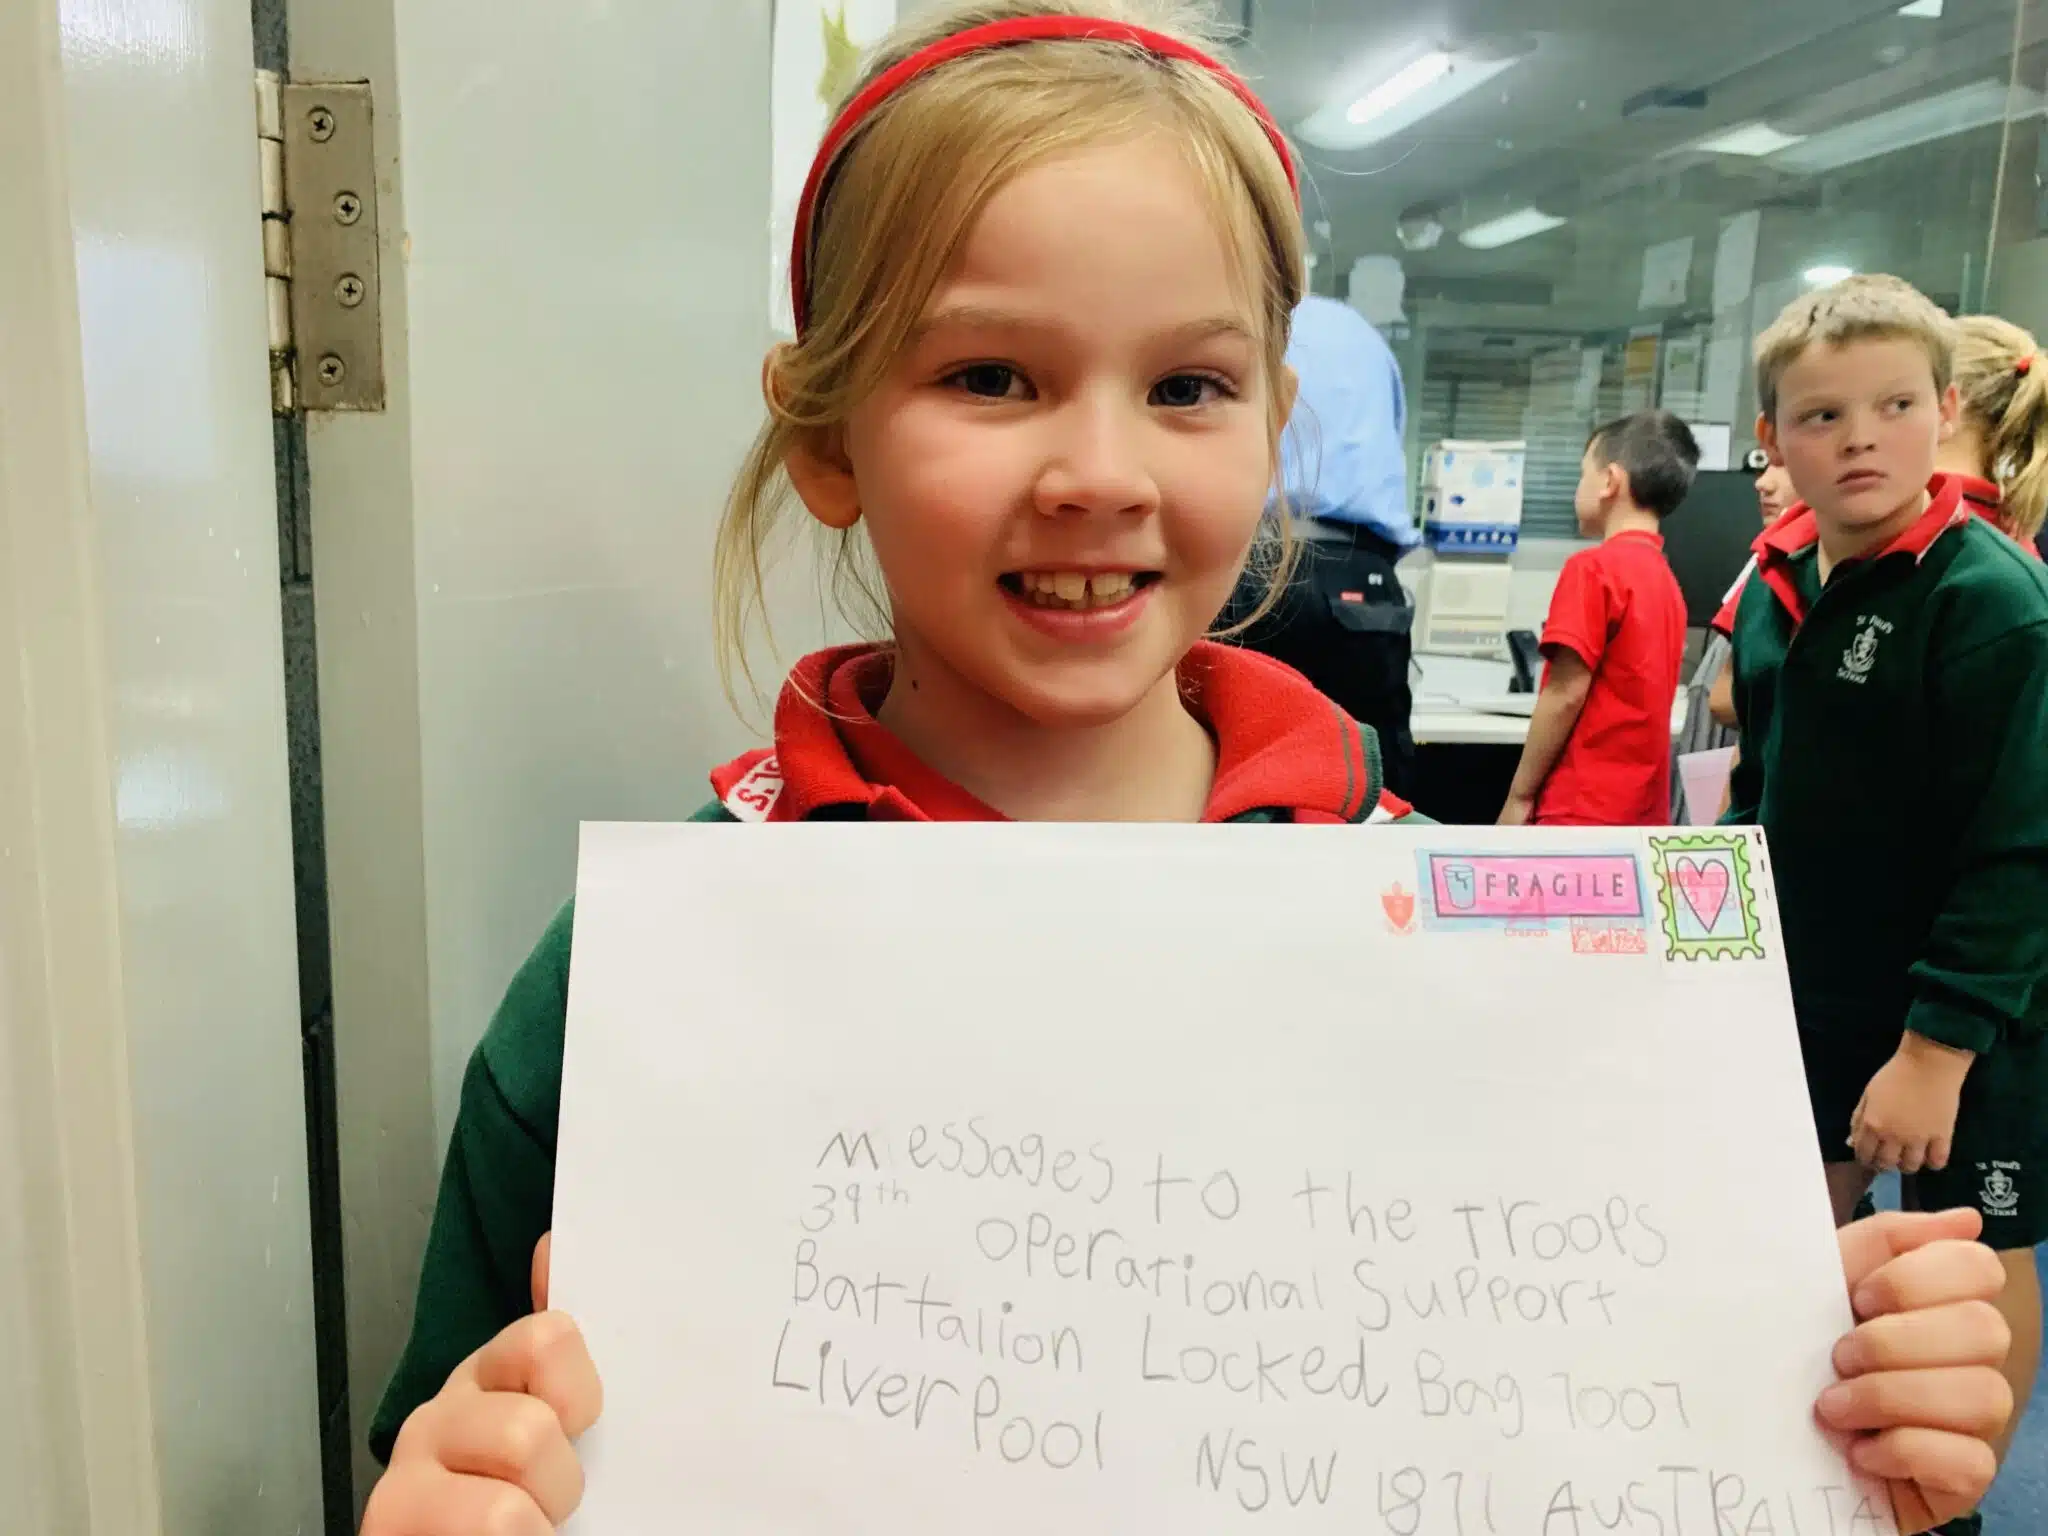 FRAGILE
Church
Messages to the Troops
39th Operational Support
Battalion Locked Bag 7007
Liverpool NSW 1871 AUSTRALIA
St Paul's
School
St Paul's
School